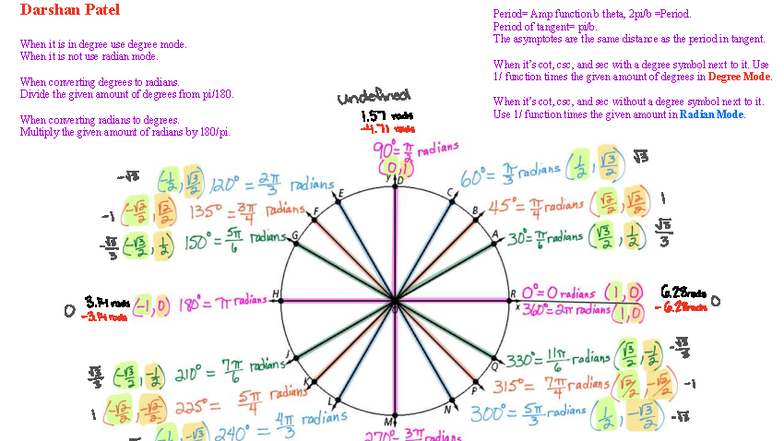 Darshan Patel
When it is in degree use degree mode.
When it is not use radian mode.
When converting degrees to radians.
Divide the given amount of degrees from pi/180.
When converting radians to degrees.
Multiply the given amount of radians by 180/pi.
Period= Amp function b theta, 2pi/b =Period.
Period of tangent= pi/b.
The asymptotes are the same distance as the period in tangent.
When it's cot, csc, and sec with a degree symbol next to it. Use
1/ function times the given amount of degrees in Degree Mode.
When it's cot, csc, and sec without a degree symbol next to it.
Use 1/ function times the given amount in Radian Mode.
undefined
1.57 rads
-4.71 rads
90°= π/2 radians
(0,1)
y
D
-√3 (-1/2, √3/2) 120° = 2π/3 radians E
C 60°= π/3 radians (1/2, √3/2) √3
-1 (-√2/2, √2/2) 135° = 3π/4 radians F
B 45°= π/4 radians (√2/2, √2/2) 1
-√3/3 (-√3/2, 1/2) 150°= 5π/6 radians G
A 30°= π/6 radians (√3/2, 1/2) √3/3
0 3.14 rads -3.14 rads (-1,0) 180°= π radians H
R 0°= 0 radians (1,0) 6.28 rads
x 360°= 2π radians (1,0) -6.28 rads 0
√3/3 (-√3/2, -1/2) 210° = 7π/6 radians J
Q 330°= 11π/6 radians (√3/2, -1/2) -√3/3
1 (-√2/2, -√2/2) 225° = 5π/4 radians K
P 315°= 7π/4 radians (√2/2, -√2/2) -1
(-1/2, -√3/2) 240° = 4π/3 radians L
N 300°= 5π/3 radians (1/2, -√3/2) -√3
M
270°= 3π radians